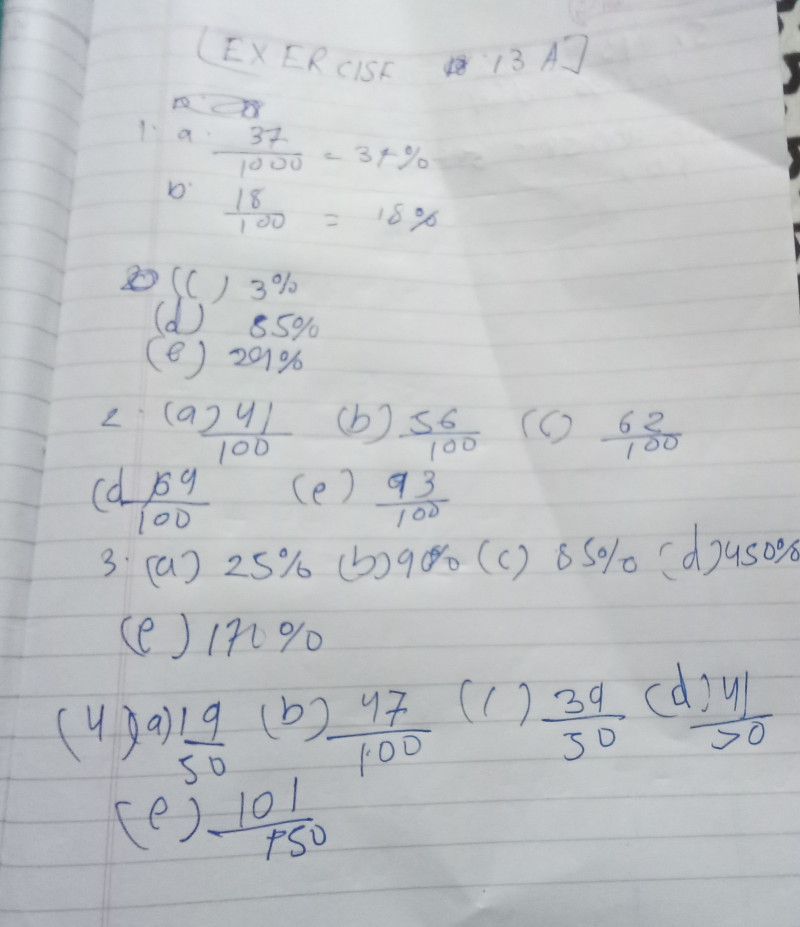 [EXERCISE 13 A]
1. a. 37/1000 = 37%
b. 18/100 = 18%
(c) 3%
(d) 85%
(e) 291%
2. (a) 41/100 (b) 56/100 (c) 62/100
(d 69/100 (e) 93/100
3. (a) 25% (b) 90% (c) 85% (d) 450%
(e) 170%
(4) (a) 19/50 (b) 47/100 (c) 39/50 (d) 41/50
(e) 101/150